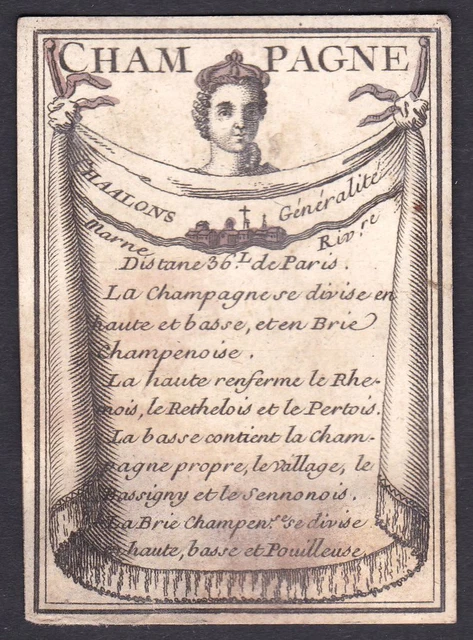 CHAMPAGNE
HAALONS Généralité
Marne Riv.re
Distane 36.L de Paris.
La Champagne se divise en
haute et basse, et en Brie
Champenoise.
La haute renferme le Rhe-
mois, le Rethelois et le Pertois.
La basse contient la Cham-
pagne propre, le Village, le
Bassigny et le Sennonois.
La Brie Champen.se se divise
en haute, basse et Pouilleuse